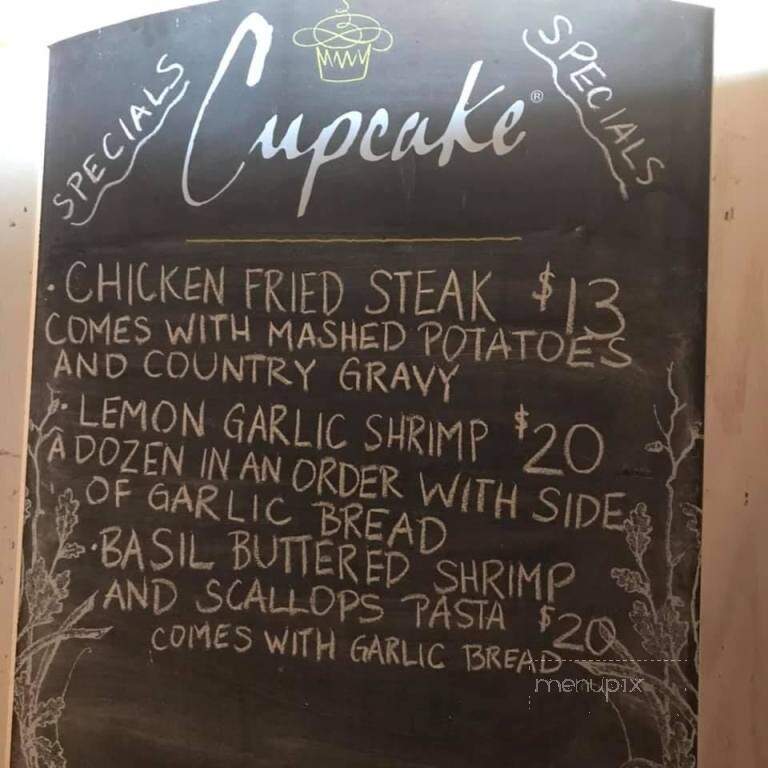 SPECIALS
Cupcake®
SPECIALS
· CHICKEN FRIED STEAK $13
COMES WITH MASHED POTATOES
AND COUNTRY GRAVY
· LEMON GARLIC SHRIMP $20
A DOZEN IN AN ORDER WITH SIDE
OF GARLIC BREAD
· BASIL BUTTERED SHRIMP
AND SCALLOPS PASTA $20
COMES WITH GARLIC BREAD
menupix